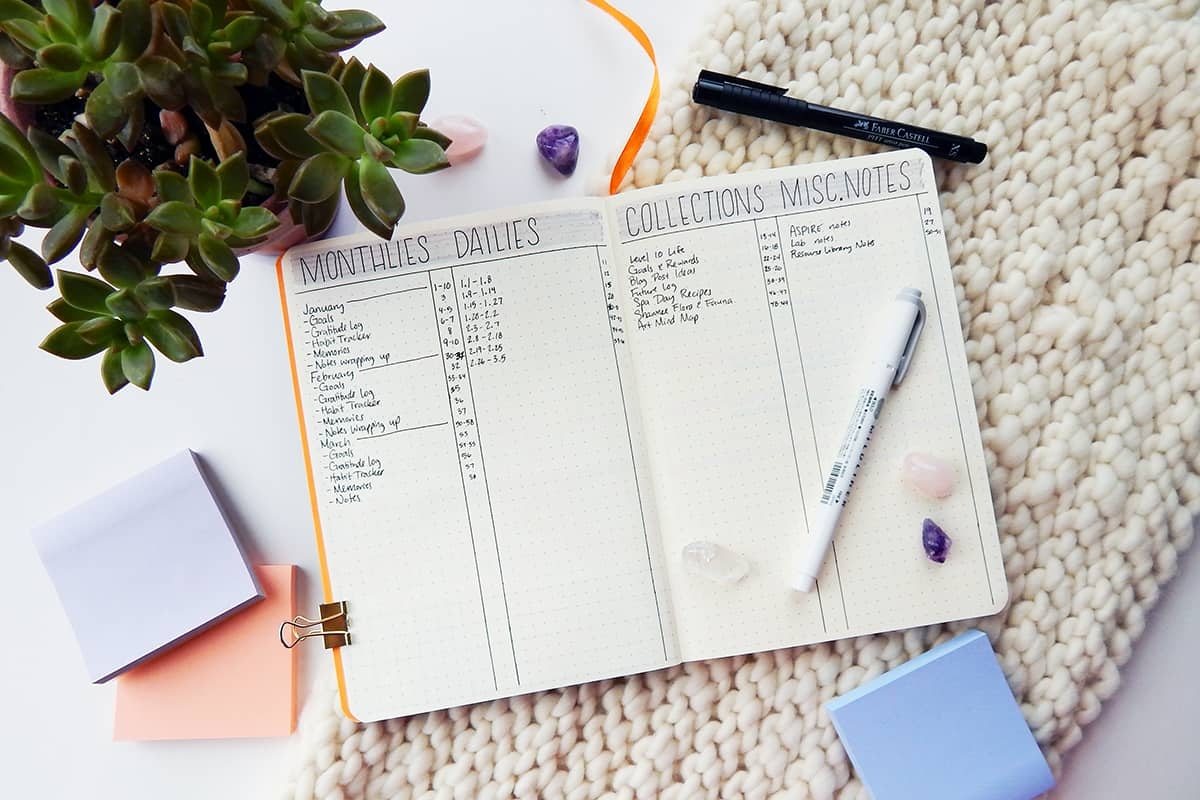 FABER CASTELL
MONTHLIES DAILIES
January
- Goals
- Gratitude log
- Habit Tracker
- Memories
- Notes wrapping up
February
- Goals
- Gratitude log
- Habit Tracker
- Memories
- Notes wrapping up
March
- Goals
- Gratitude log
- Habit Tracker
- Memories
- Notes
1-10
3
4-5
6-7
8
9-10
32
35
36
37
1.1-1.8
1.9-1.14
1.15-1.27
1.28-2.2
2.3-2.7
2.8-2.18
2.19-2.25
2.26-3.5
COLLECTIONS MISC.NOTES
Level 10 Life
Goals & Rewards
Blog Post Ideas
Future Log
Spa Day Recipes
Shawnee Flora & Fauna
Art Mind Map
13-14
16-18
22-24
25-26
ASPIRE notes
Lab notes
Resource Library Note
19
27